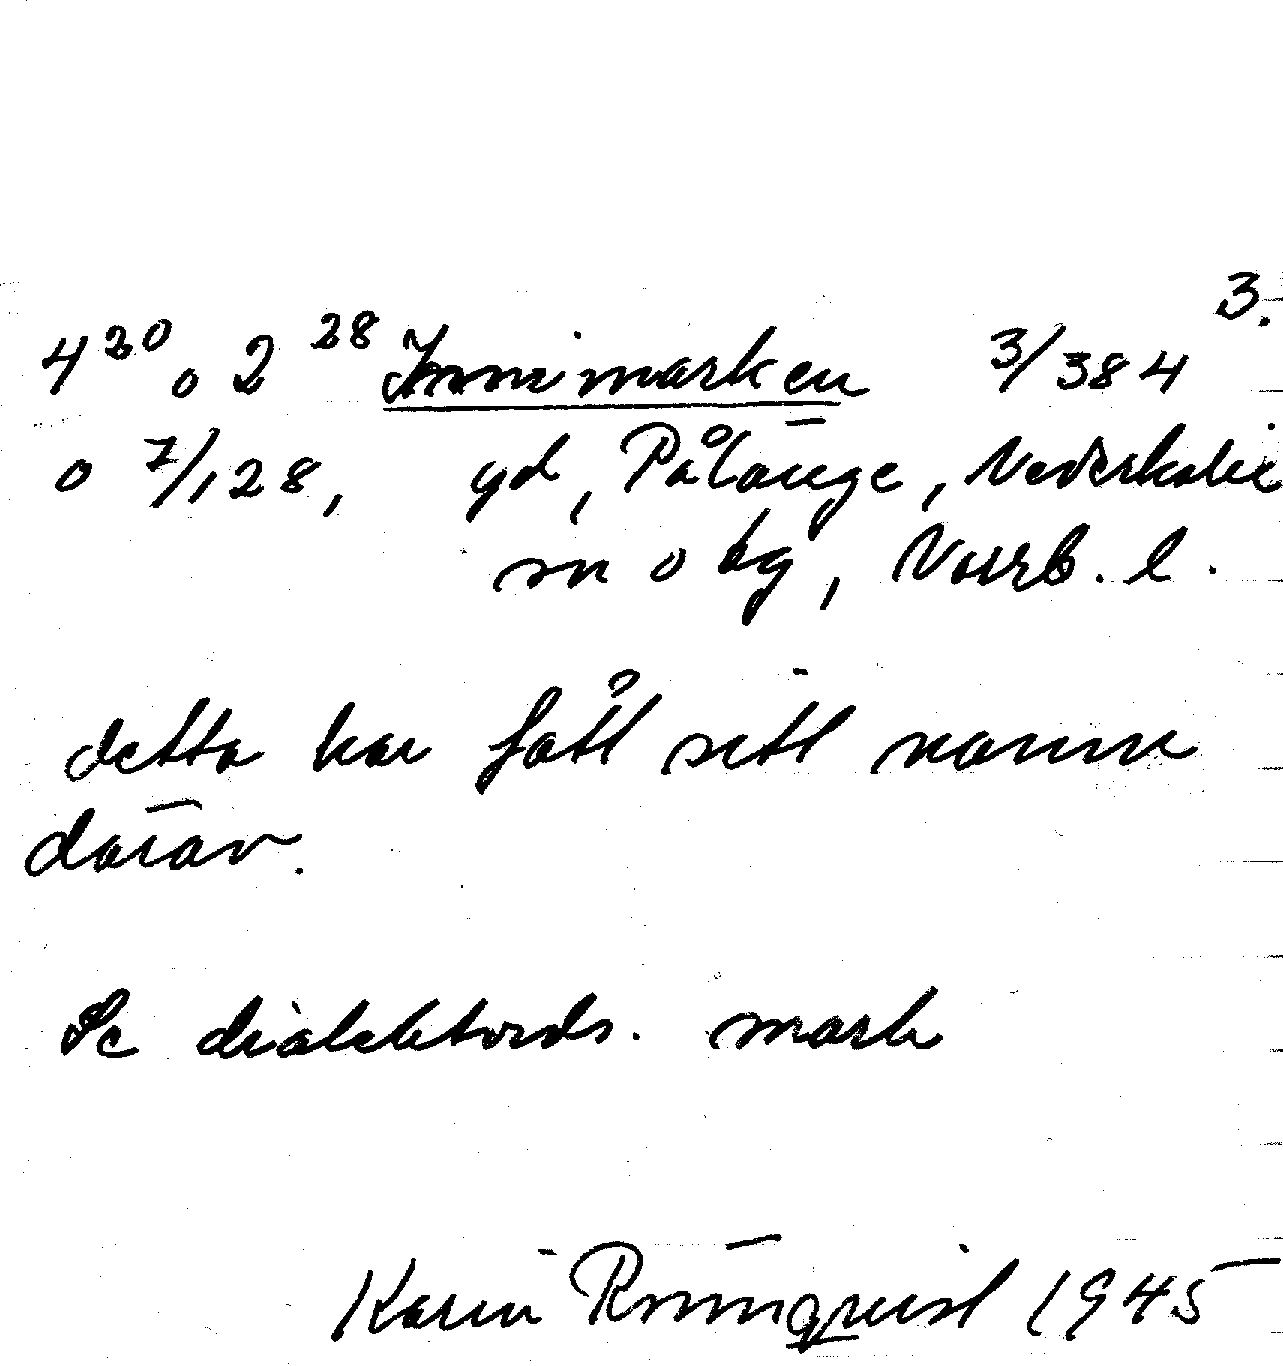 3.
4²⁰ o 2²⁸ Innimarken 3/384
o 7/128, yd, Pålänge, Nederkalix
sn o tg, Norrb. l.
detta har fått sitt namn
därav.
Se dialektords. mark
Karin Rönnqvist 1945